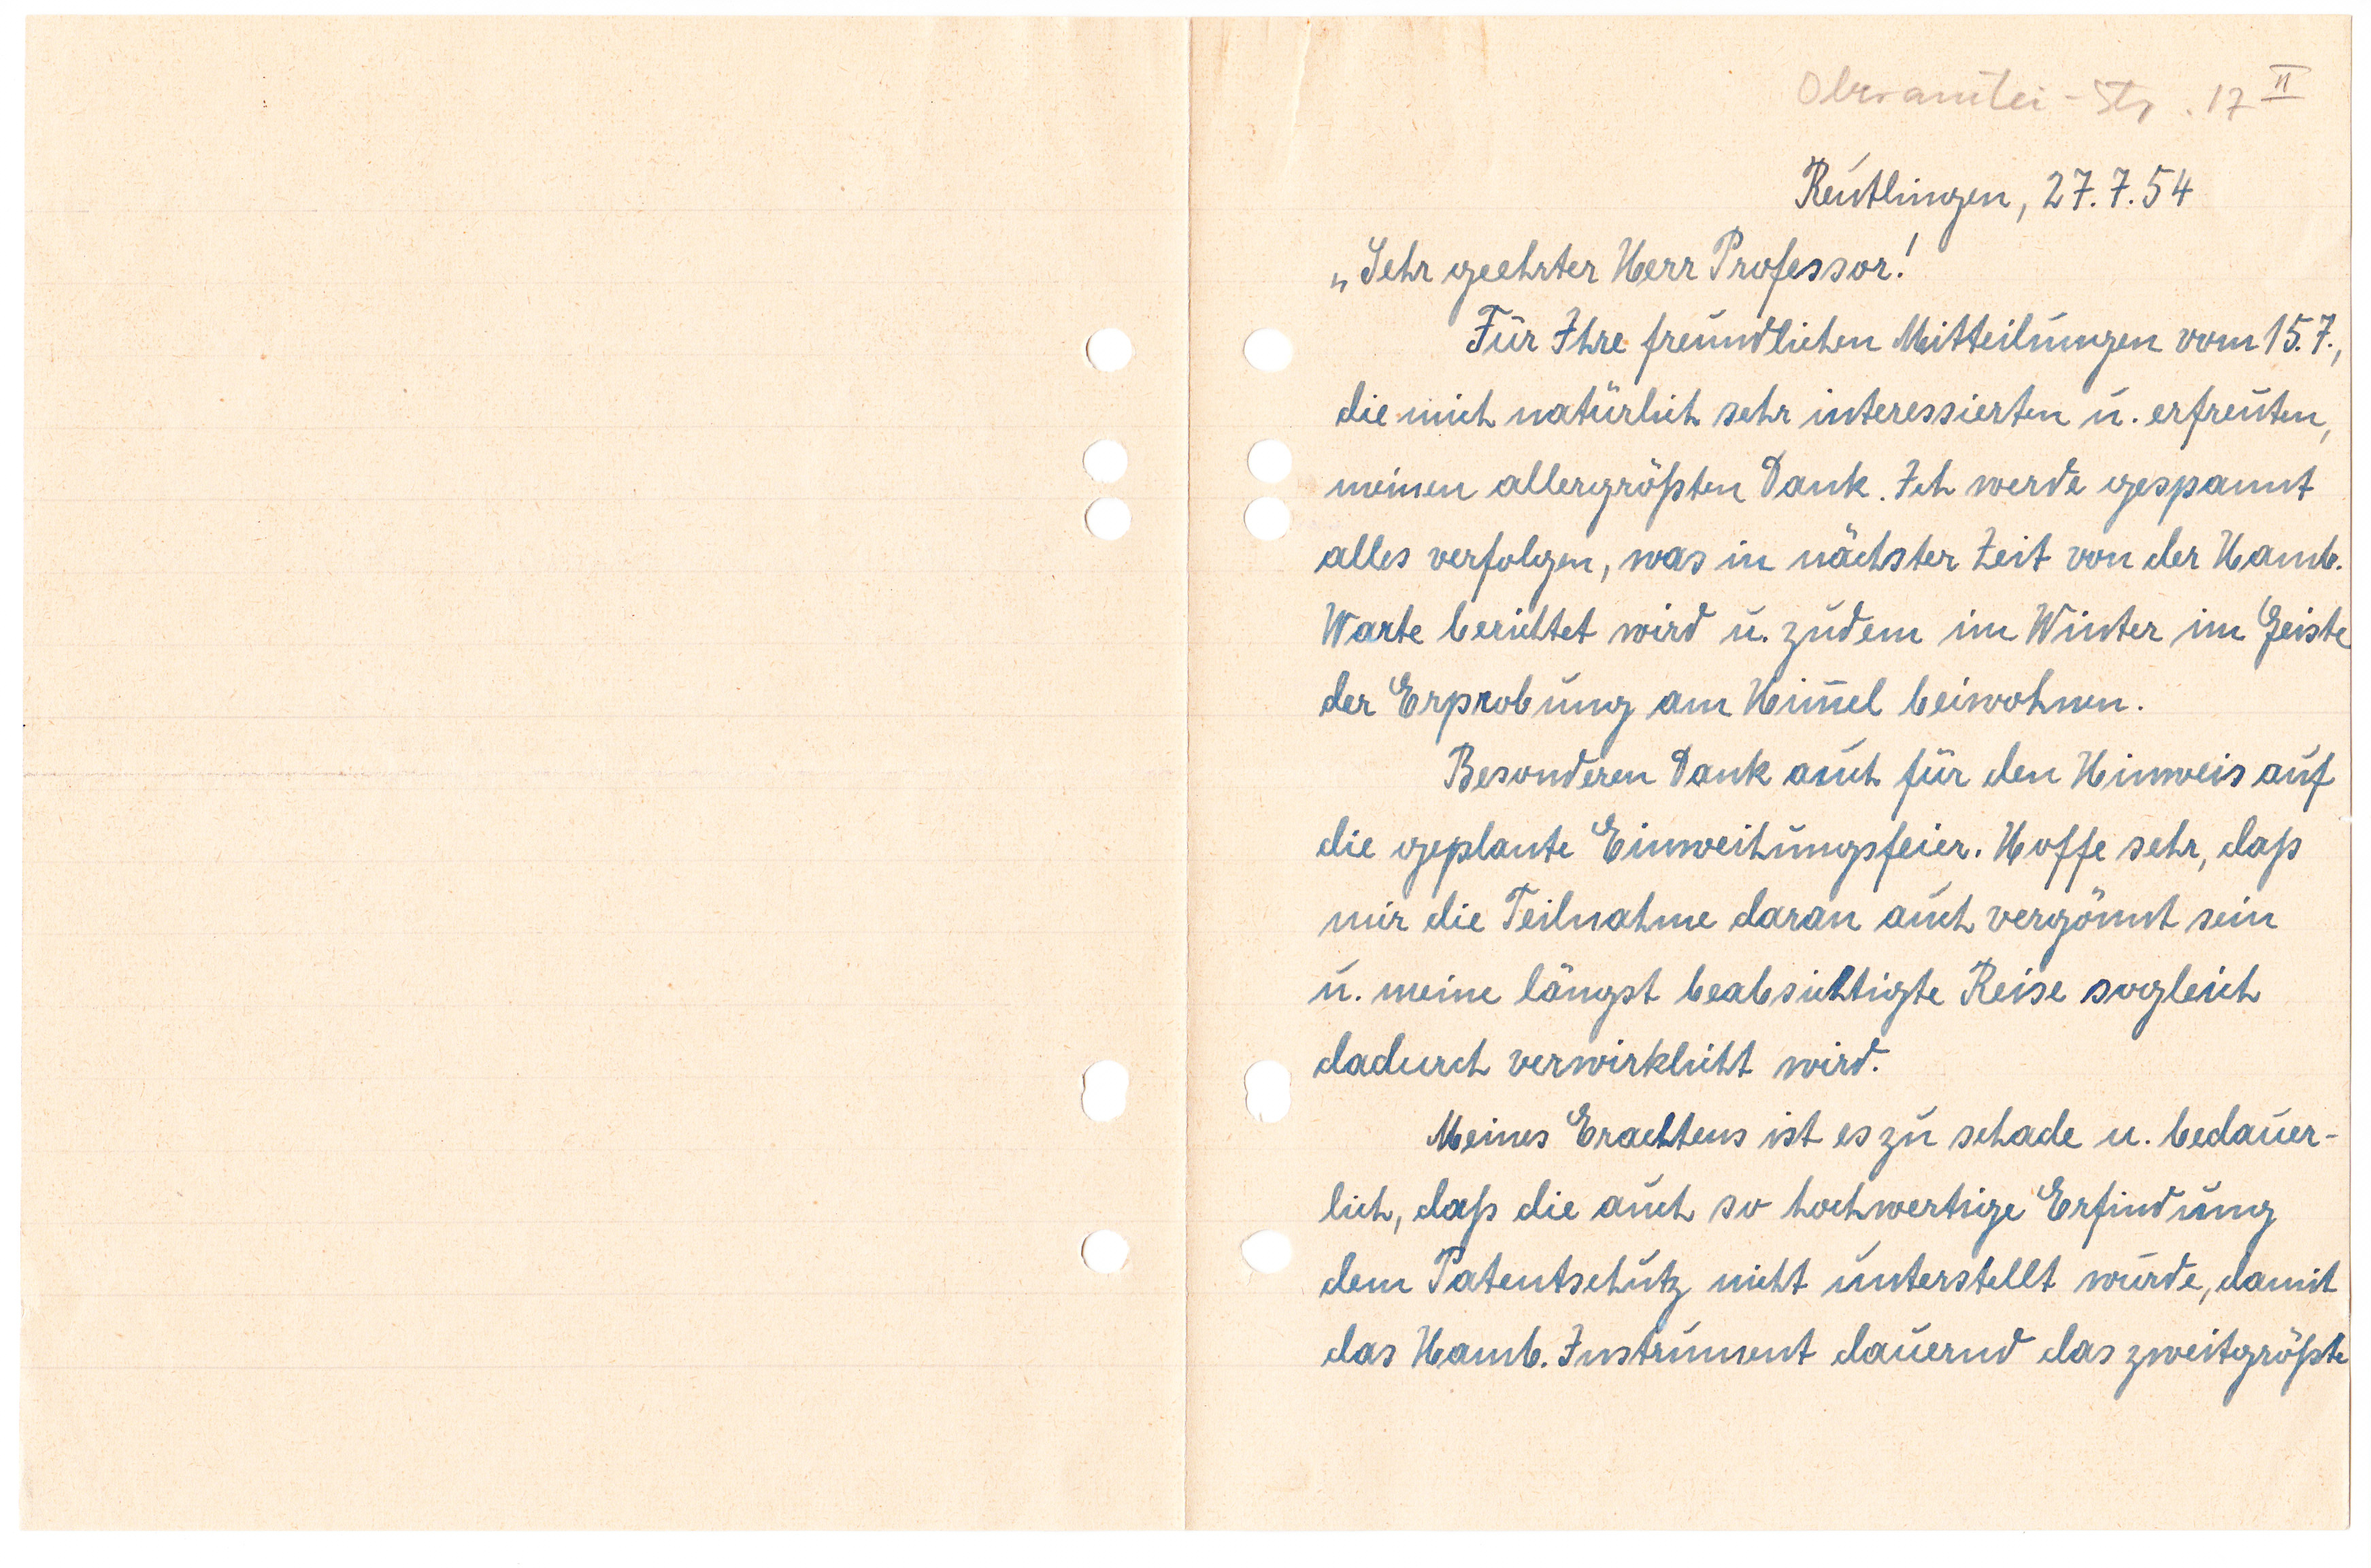 Oberamtei-Str. 17 II
Reutlingen, 27.7.54
„Sehr geehrter Herr Professor!
Für Ihre freundlichen Mitteilungen vom 15.7.,
die mich natürlich sehr interessierten u. erfreuten,
meinen allergrößten Dank. Ich werde gespannt
alles verfolgen, was in nächster Zeit von der Hamb.
Warte berichtet wird u. zudem im Winter im Geiste
der Erprobung am Him̅el beiwohnen.
Besonderen Dank auch für den Hinweis auf
die geplante Einweihungsfeier. Hoffe sehr, daß
mir die Teilnahme daran auch vergönnt sein
u. meine längst beabsichtigte Reise sogleich
dadurch verwirklicht wird.
Meines Erachtens ist es zu schade u. bedauer-
lich, daß die auch so hochwertige Erfindung
dem Patentschutz nicht unterstellt wurde, damit
das Hamb. Instrument dauernd das zweitgrößte